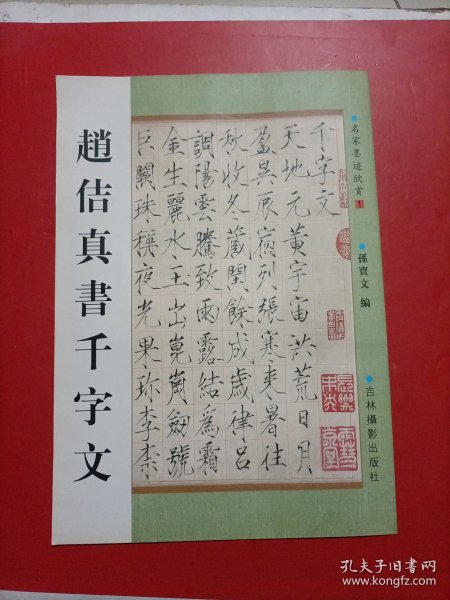 趙佶真書千字文
名家墨迹欣賞 1
孫寳文 編
吉林攝影出版社
千字文
天地元黄宇宙洪荒日月
盈昃辰宿列張寒来暑往
秋收冬藏閏餘成歲律吕
調陽雲騰致雨露結爲霜
金生麗水玉出崑崗劒號
巨闕珠稱夜光果珎李柰
孔夫子旧书网
www.kongfz.com